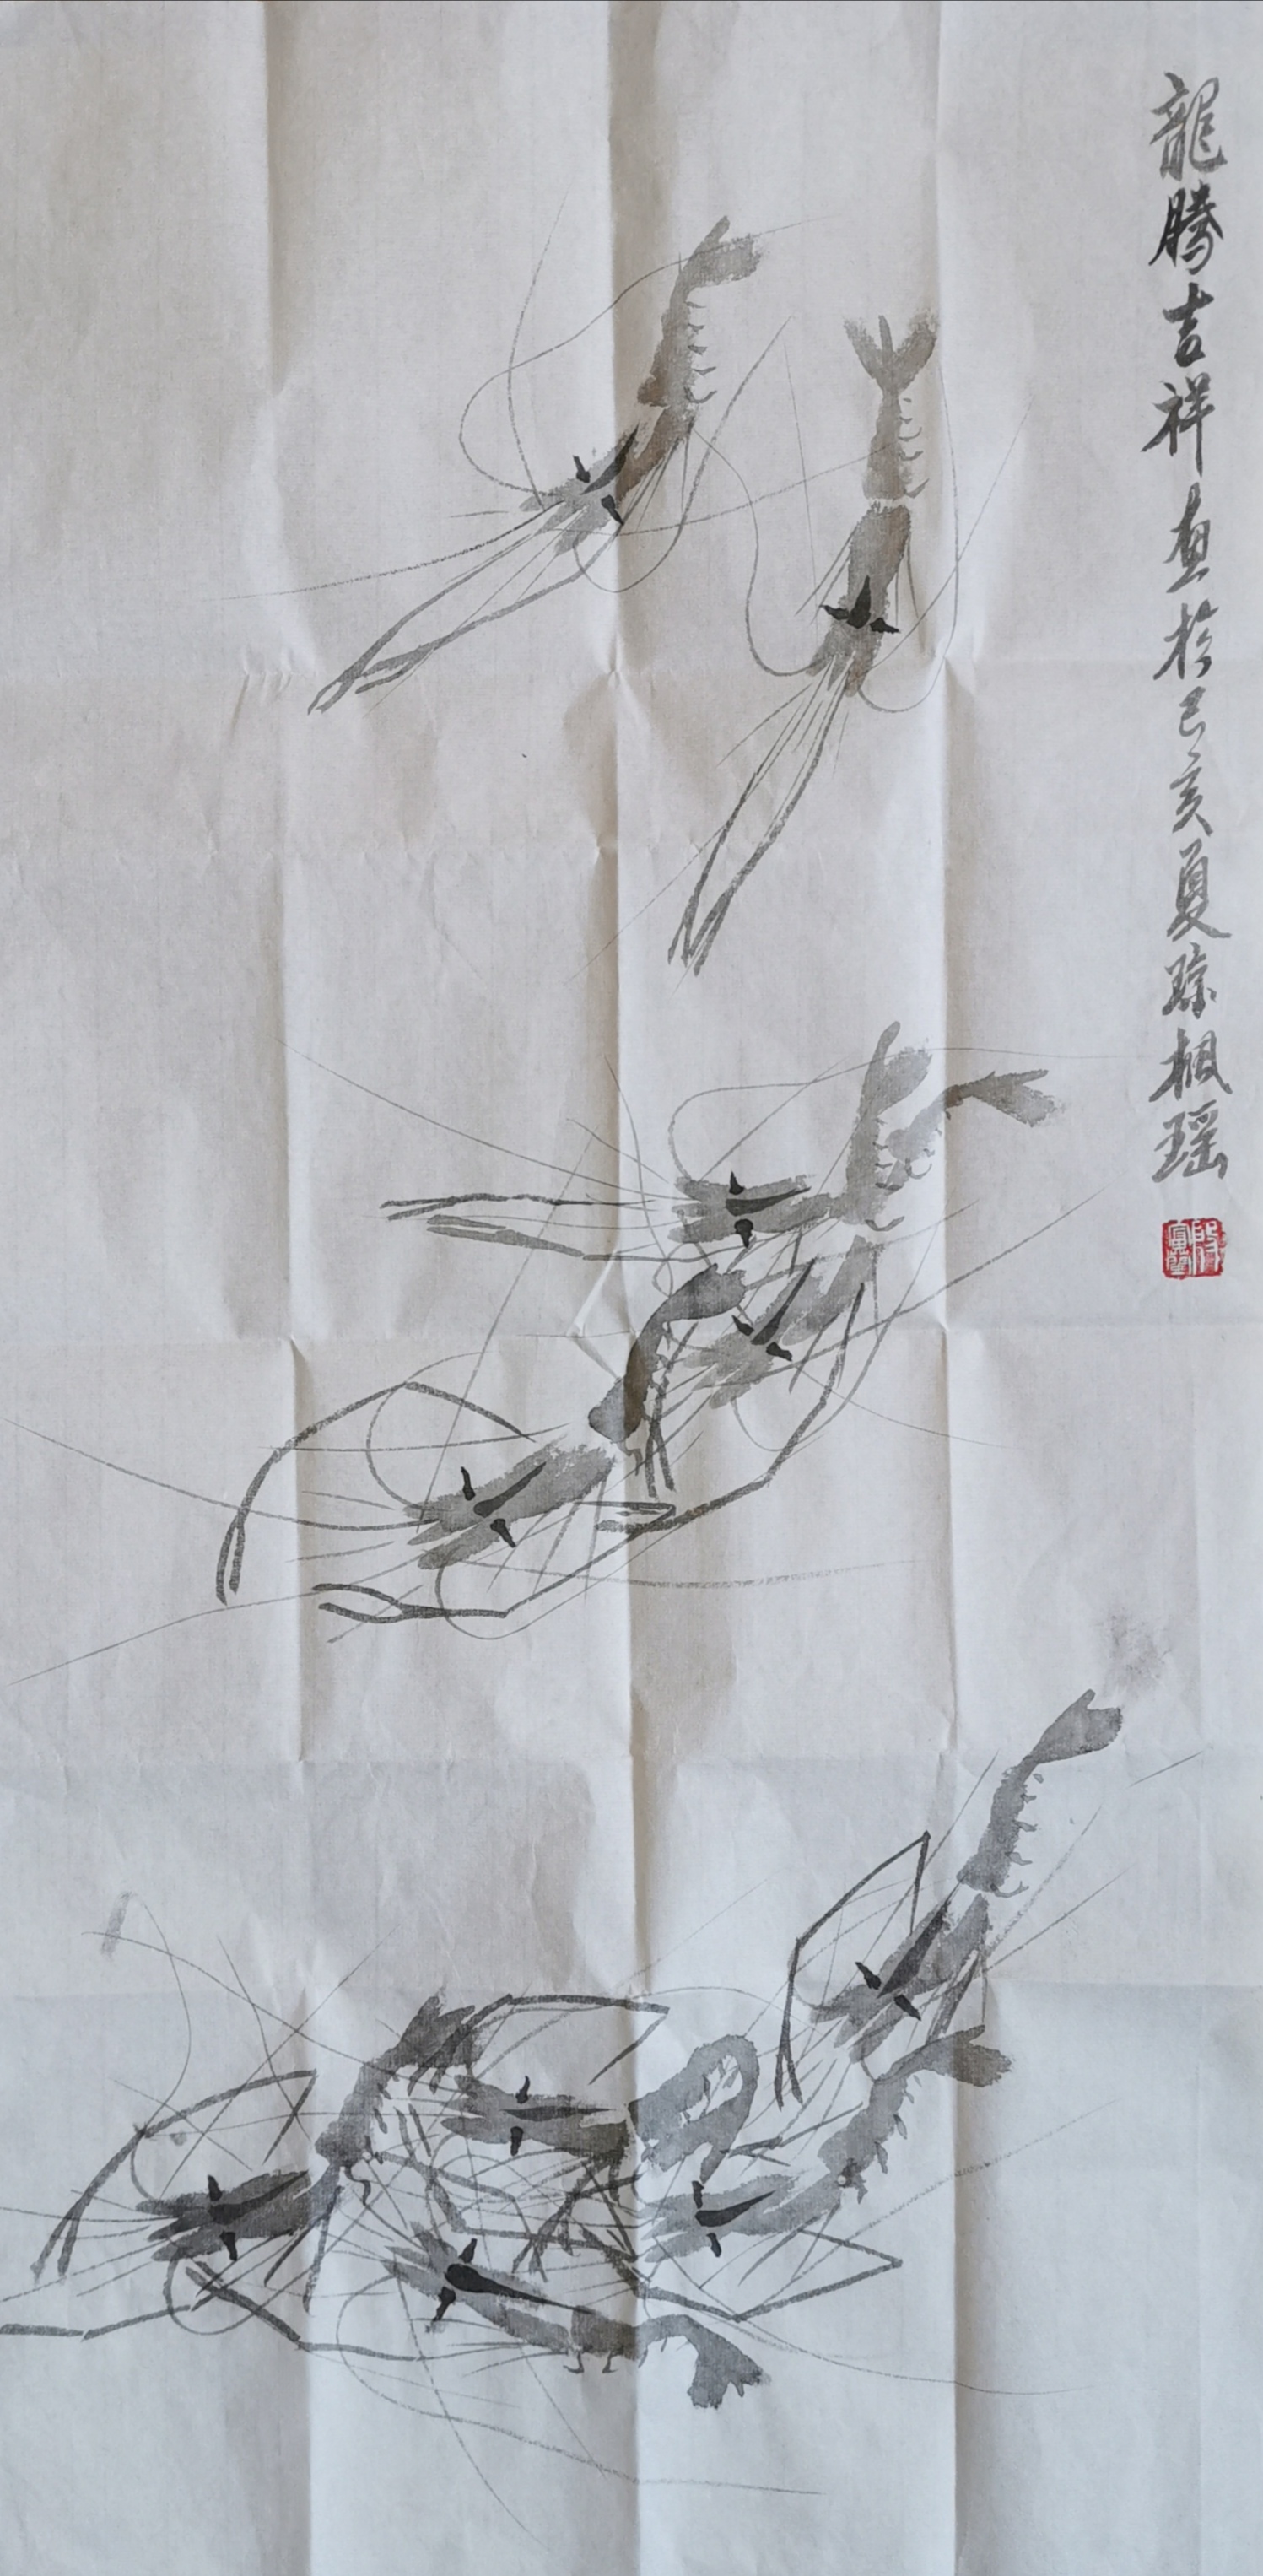 龍騰吉祥畫於己亥夏琼楓瑶